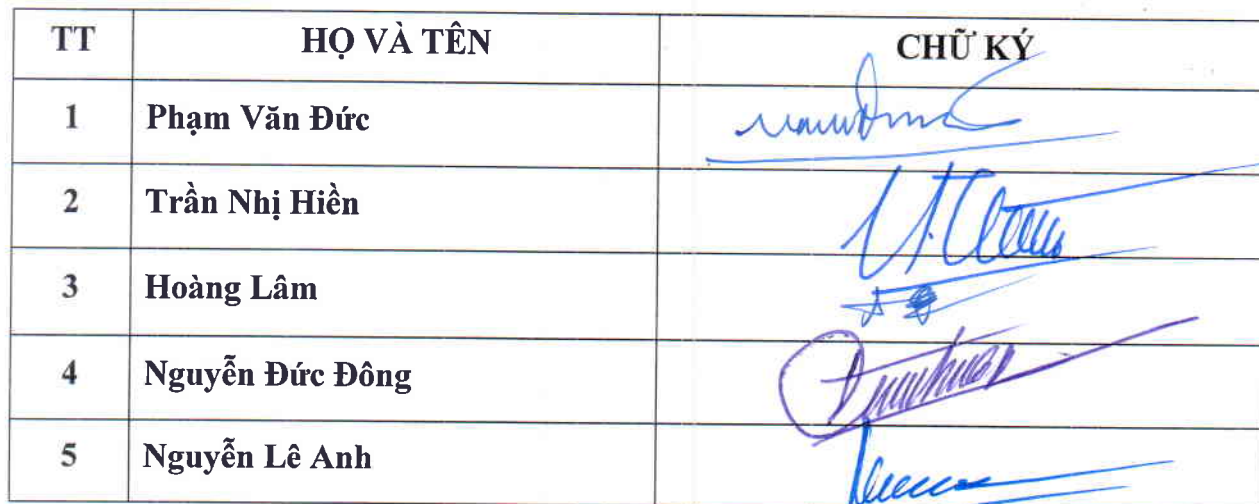 TT HỌ VÀ TÊN CHỮ KÝ
1 Phạm Văn Đức
2 Trần Nhị Hiền
3 Hoàng Lâm
4 Nguyễn Đức Đông
5 Nguyễn Lê Anh